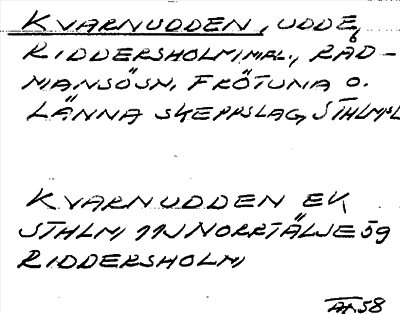 KVARNUDDEN, UDDE,
RIDDERSHOLM, MRL., RÅD-
MANSÖSN, FRÖTUNA O.
LÄNNA SKEPPSLAG, STHLMSL
KVARNUDDEN EK
STHLM 11J NORRTÄLJE 59
RIDDERSHOLM
58